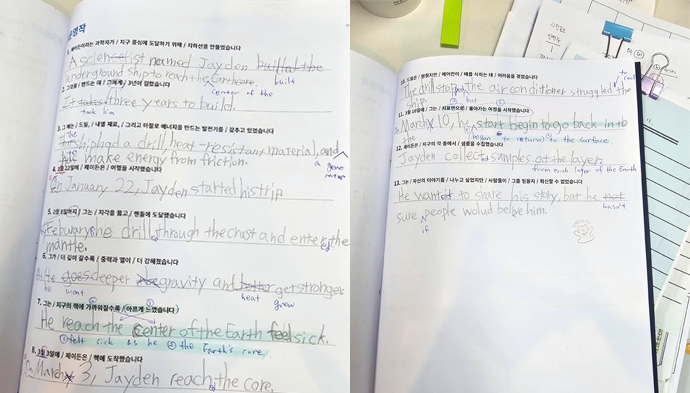 영작
1. 제이든이라는 과학자가 / 지구 중심에 도달하기 위해 / 지하선을 만들었습니다
A scientist named Jayden builted the
built
underground ship to reach the Earth core.
center of the
2. 그것을 / 만드는 데 / 그에게 / 3년이 걸렸습니다
It takes three years to build.
took him
3. 그 배는 / 드릴, / 내열 재료, / 그리고 마찰로 에너지를 만드는 발전기를 / 갖추고 있었습니다
ship had a drill, heat-resistant material, and
make energy from friction.
a generator
4. 1월 22일에 / 제이든은 / 여행을 시작했습니다
On January 22, Jayden started his trip
5. 2월 8일까지 / 그는 / 지각을 뚫고 / 맨틀에 도달했습니다
February he drill through the crust and enter the
ed
mantle.
6. 그가 / 더 깊이 갈수록 / 중력과 열이 / 더 강해졌습니다
he goes deeper gravity and get stronger
went
heat
grew
7. 그는 / 지구의 핵에 가까워질수록 / 아프게 느꼈습니다
He reach the center of the Earth feel sick.
① felt sick as he ② the Earth's core.
8. 3월 3일에 / 제이든은 / 핵에 도착했습니다
On March 3, Jayden reach the core.
ed
10. 드릴은 / 멈췄지만 / 에어컨이 / 배를 식히는 데 / 어려움을 겪었습니다
to cool
The drill stop, the air conditioner struggled the
ped
but
ship
11. 3월 10일에 / 그는 / 지표면으로 / 돌아가는 여정을 시작했습니다
March 10, he start begin to go back in to
the
began to return to the surface.
12. 제이든은 / 지구의 각 층에서 / 샘플을 수집했습니다
Jayden collect samples at the layer.
from each layer of the Earth
13. 그는 / 자신의 이야기를 / 나누고 싶었지만 / 사람들이 / 그를 믿을지 / 확신할 수 없었습니다
He want to share his story, but he not
ed
wasn't
sure people wolud belive him.
if